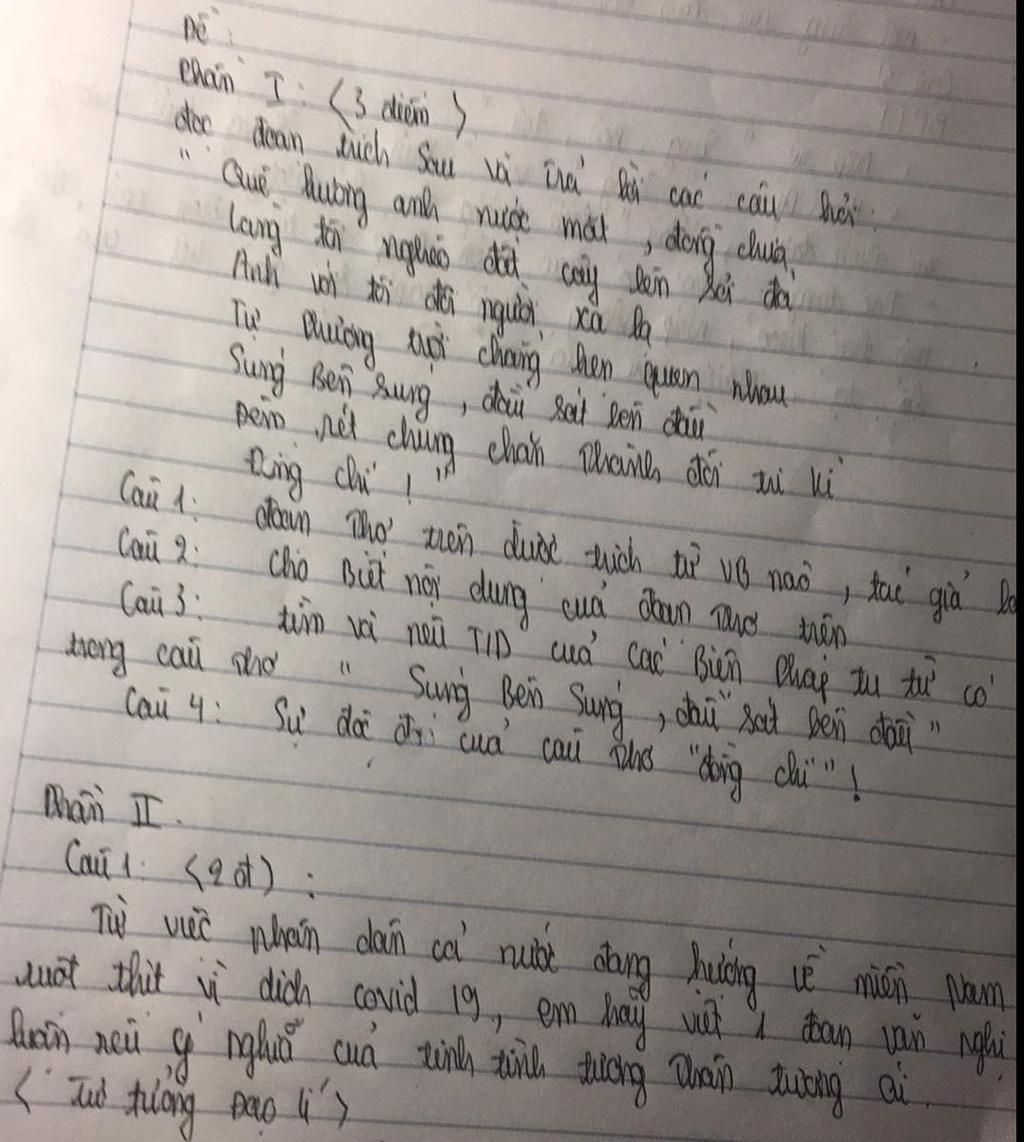 Đề:
Phần I: <3 điểm>
đọc đoạn trích sau và trả lời các câu hỏi:
" Quê hương anh nước mặt, đồng chua,
Làng tôi nghèo đất cày lên sỏi đá
Anh với tôi đôi người xa lạ
Tự phương trời chẳng hẹn quen nhau
Súng Bên súng, đầu sát bên đầu
Đêm rét chung chăn thành đôi tri kỉ
Đồng chí ! "
Câu 1: đoạn thơ trên được trích từ VB nào, tác giả là
Câu 2: Cho Biết nội dung của đoạn thơ trên
Câu 3: tìm và nêu T/D của các Biện Pháp tu từ có
trong câu thơ " Súng Bên Súng, đầu sát bên đầu "
Câu 4: Sự đặc của câu thơ "đồng chí" !
Phần II.
Câu 1: <2 đ) :
Từ việc nhân dân cả nước đang hướng về miền Nam
ruột thịt vì dịch covid 19, em hãy viết 1 đoạn văn nghị
luận nêu ý nghĩa của tinh tình tương thân tương ái.
< Tư tưởng Đạo lí >